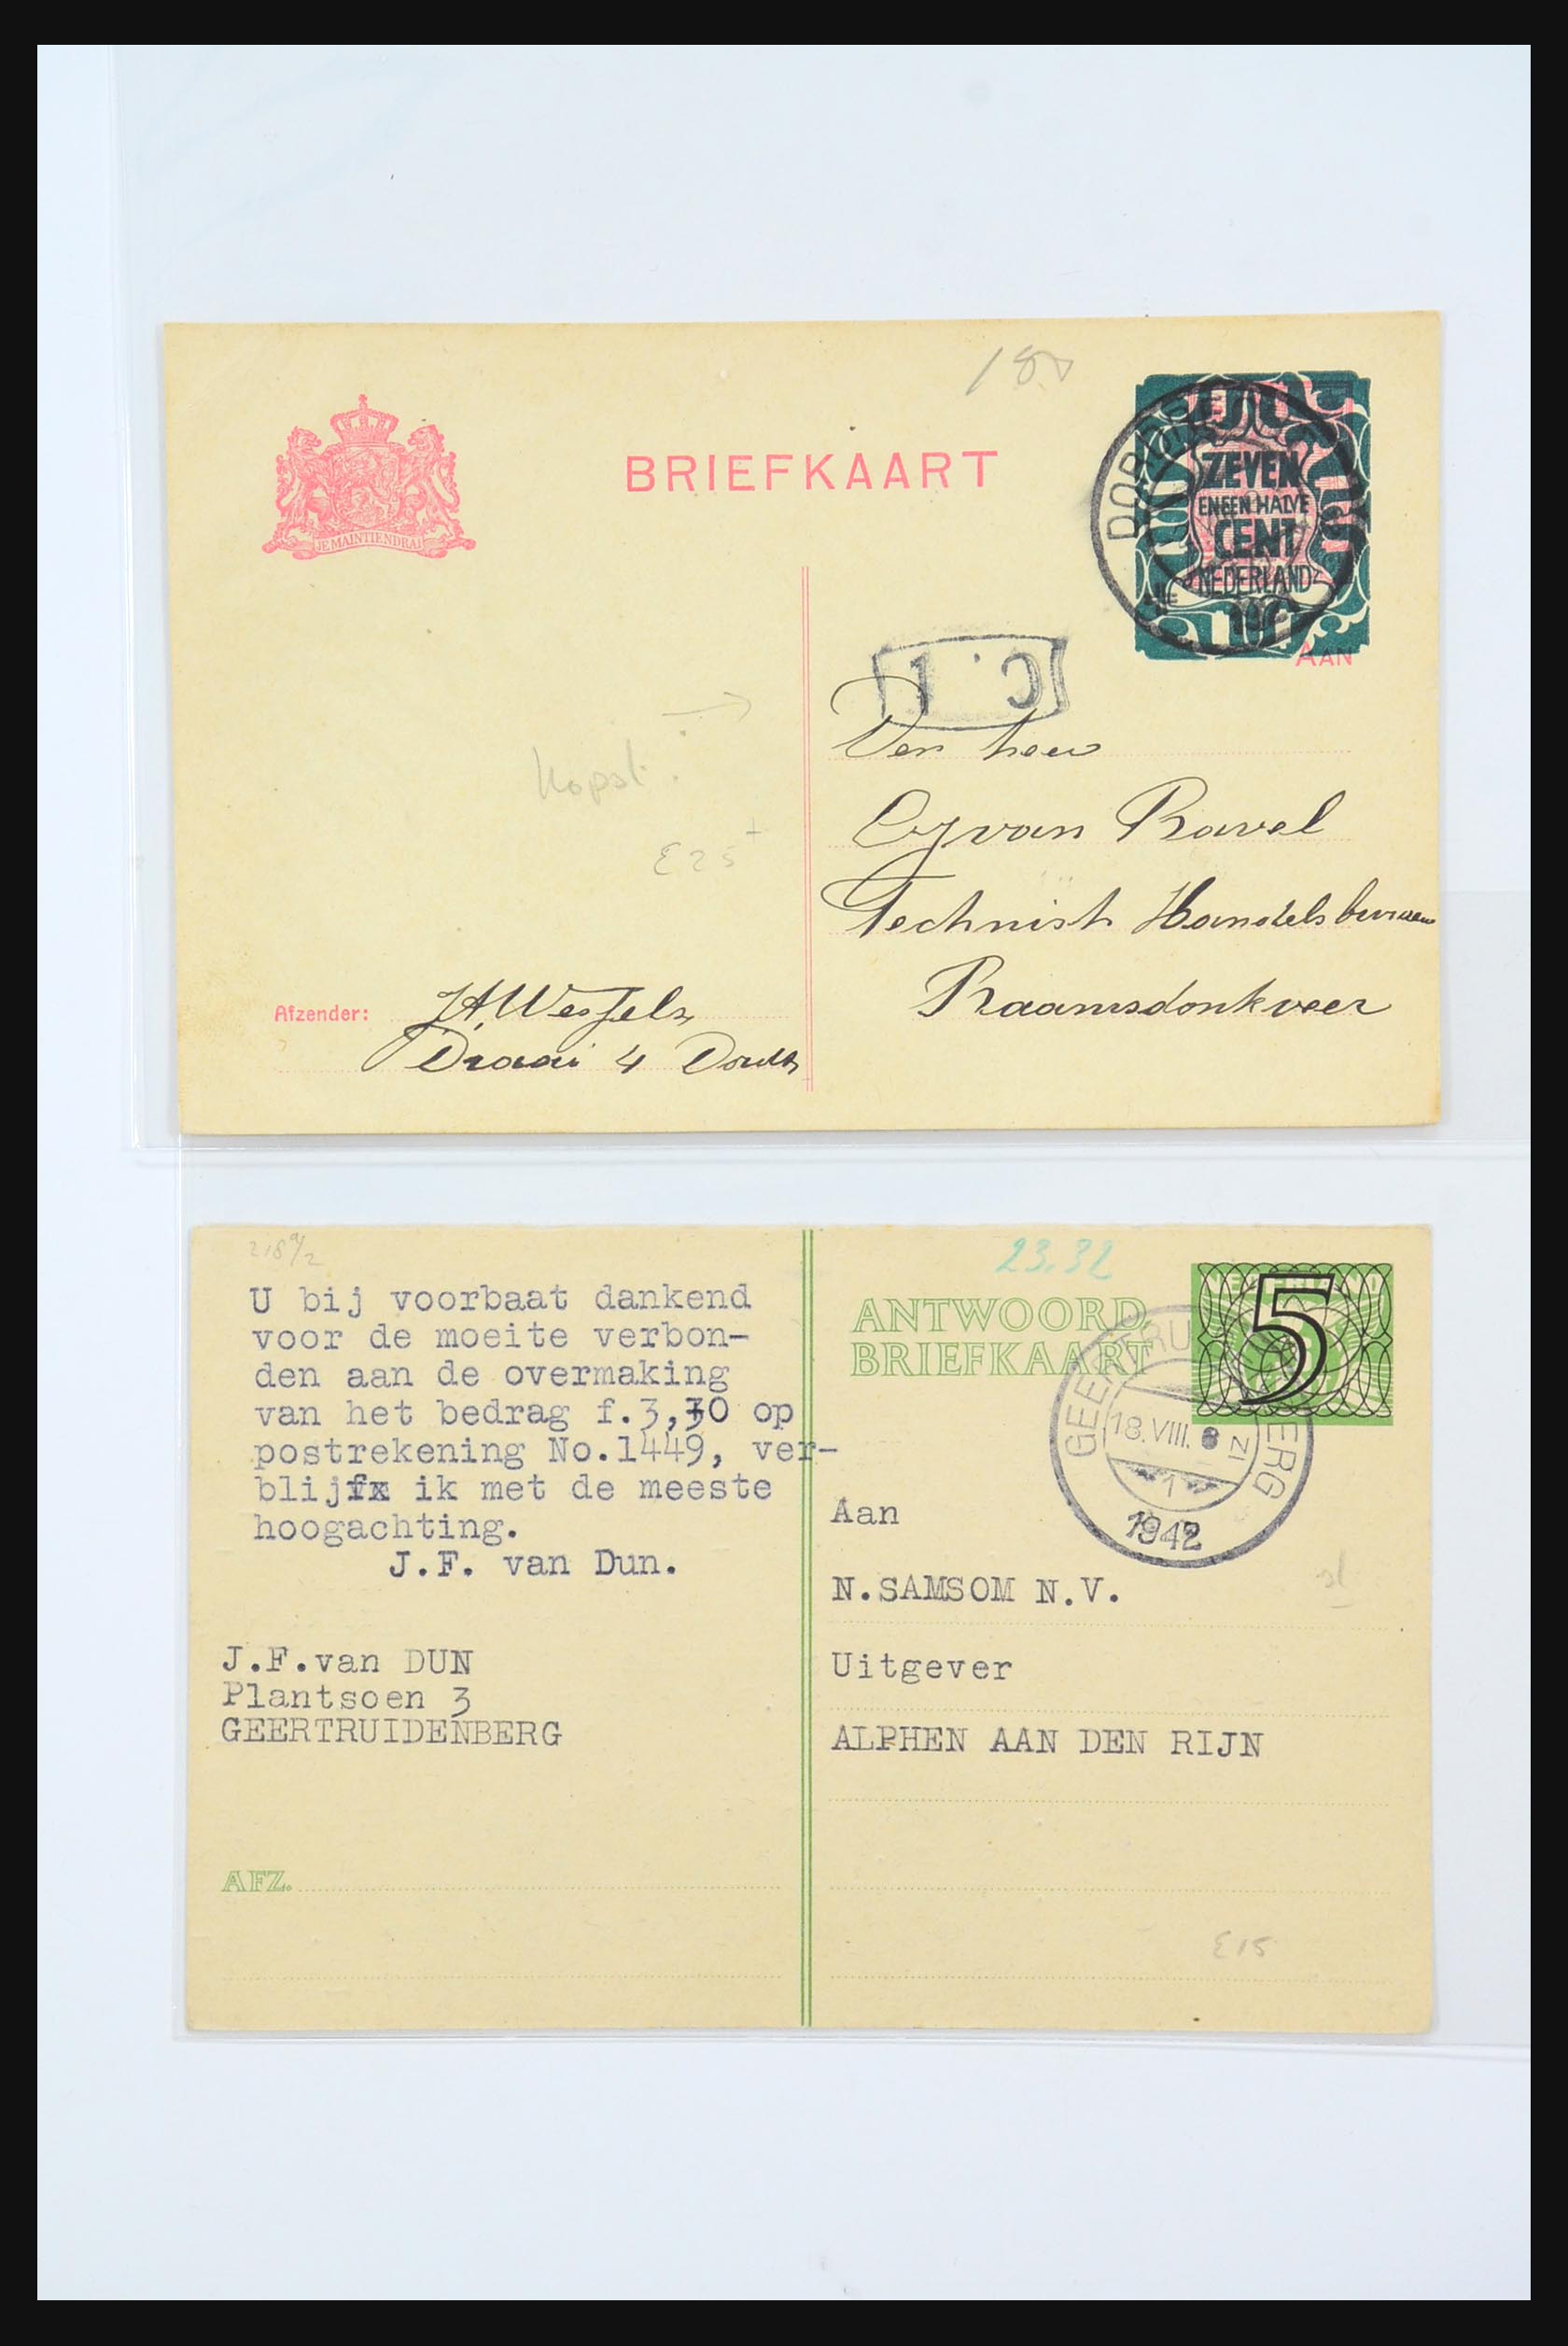 180
BRIEFKAART
JE MAINTIENDRAI
ZEVEN
EN EEN HALVE
CENT
NEDERLAND
AAN
1 C.
Den heer
van Ravel
Technisch Handelsbureau
Raamsdonkveer
Kopst.
£25
Afzender: J.A. Wessels
Draai 4 Dordt
218 a/2
U bij voorbaat dankend
voor de moeite verbon-
den aan de overmaking
van het bedrag f.3,30 op
postrekening No.1449, ver-
blijfx ik met de meeste
hoogachting.
J.F. van Dun.
J.F.van DUN
Plantsoen 3
GEERTRUIDENBERG
AFZ.
23.32
ANTWOORD
BRIEFKAART
NEDERLAND
5
GEERTRU ERG
18.VIII. 8
1
1942
Aan
N.SAMSOM N.V.
Uitgever
ALPHEN AAN DEN RIJN
£15